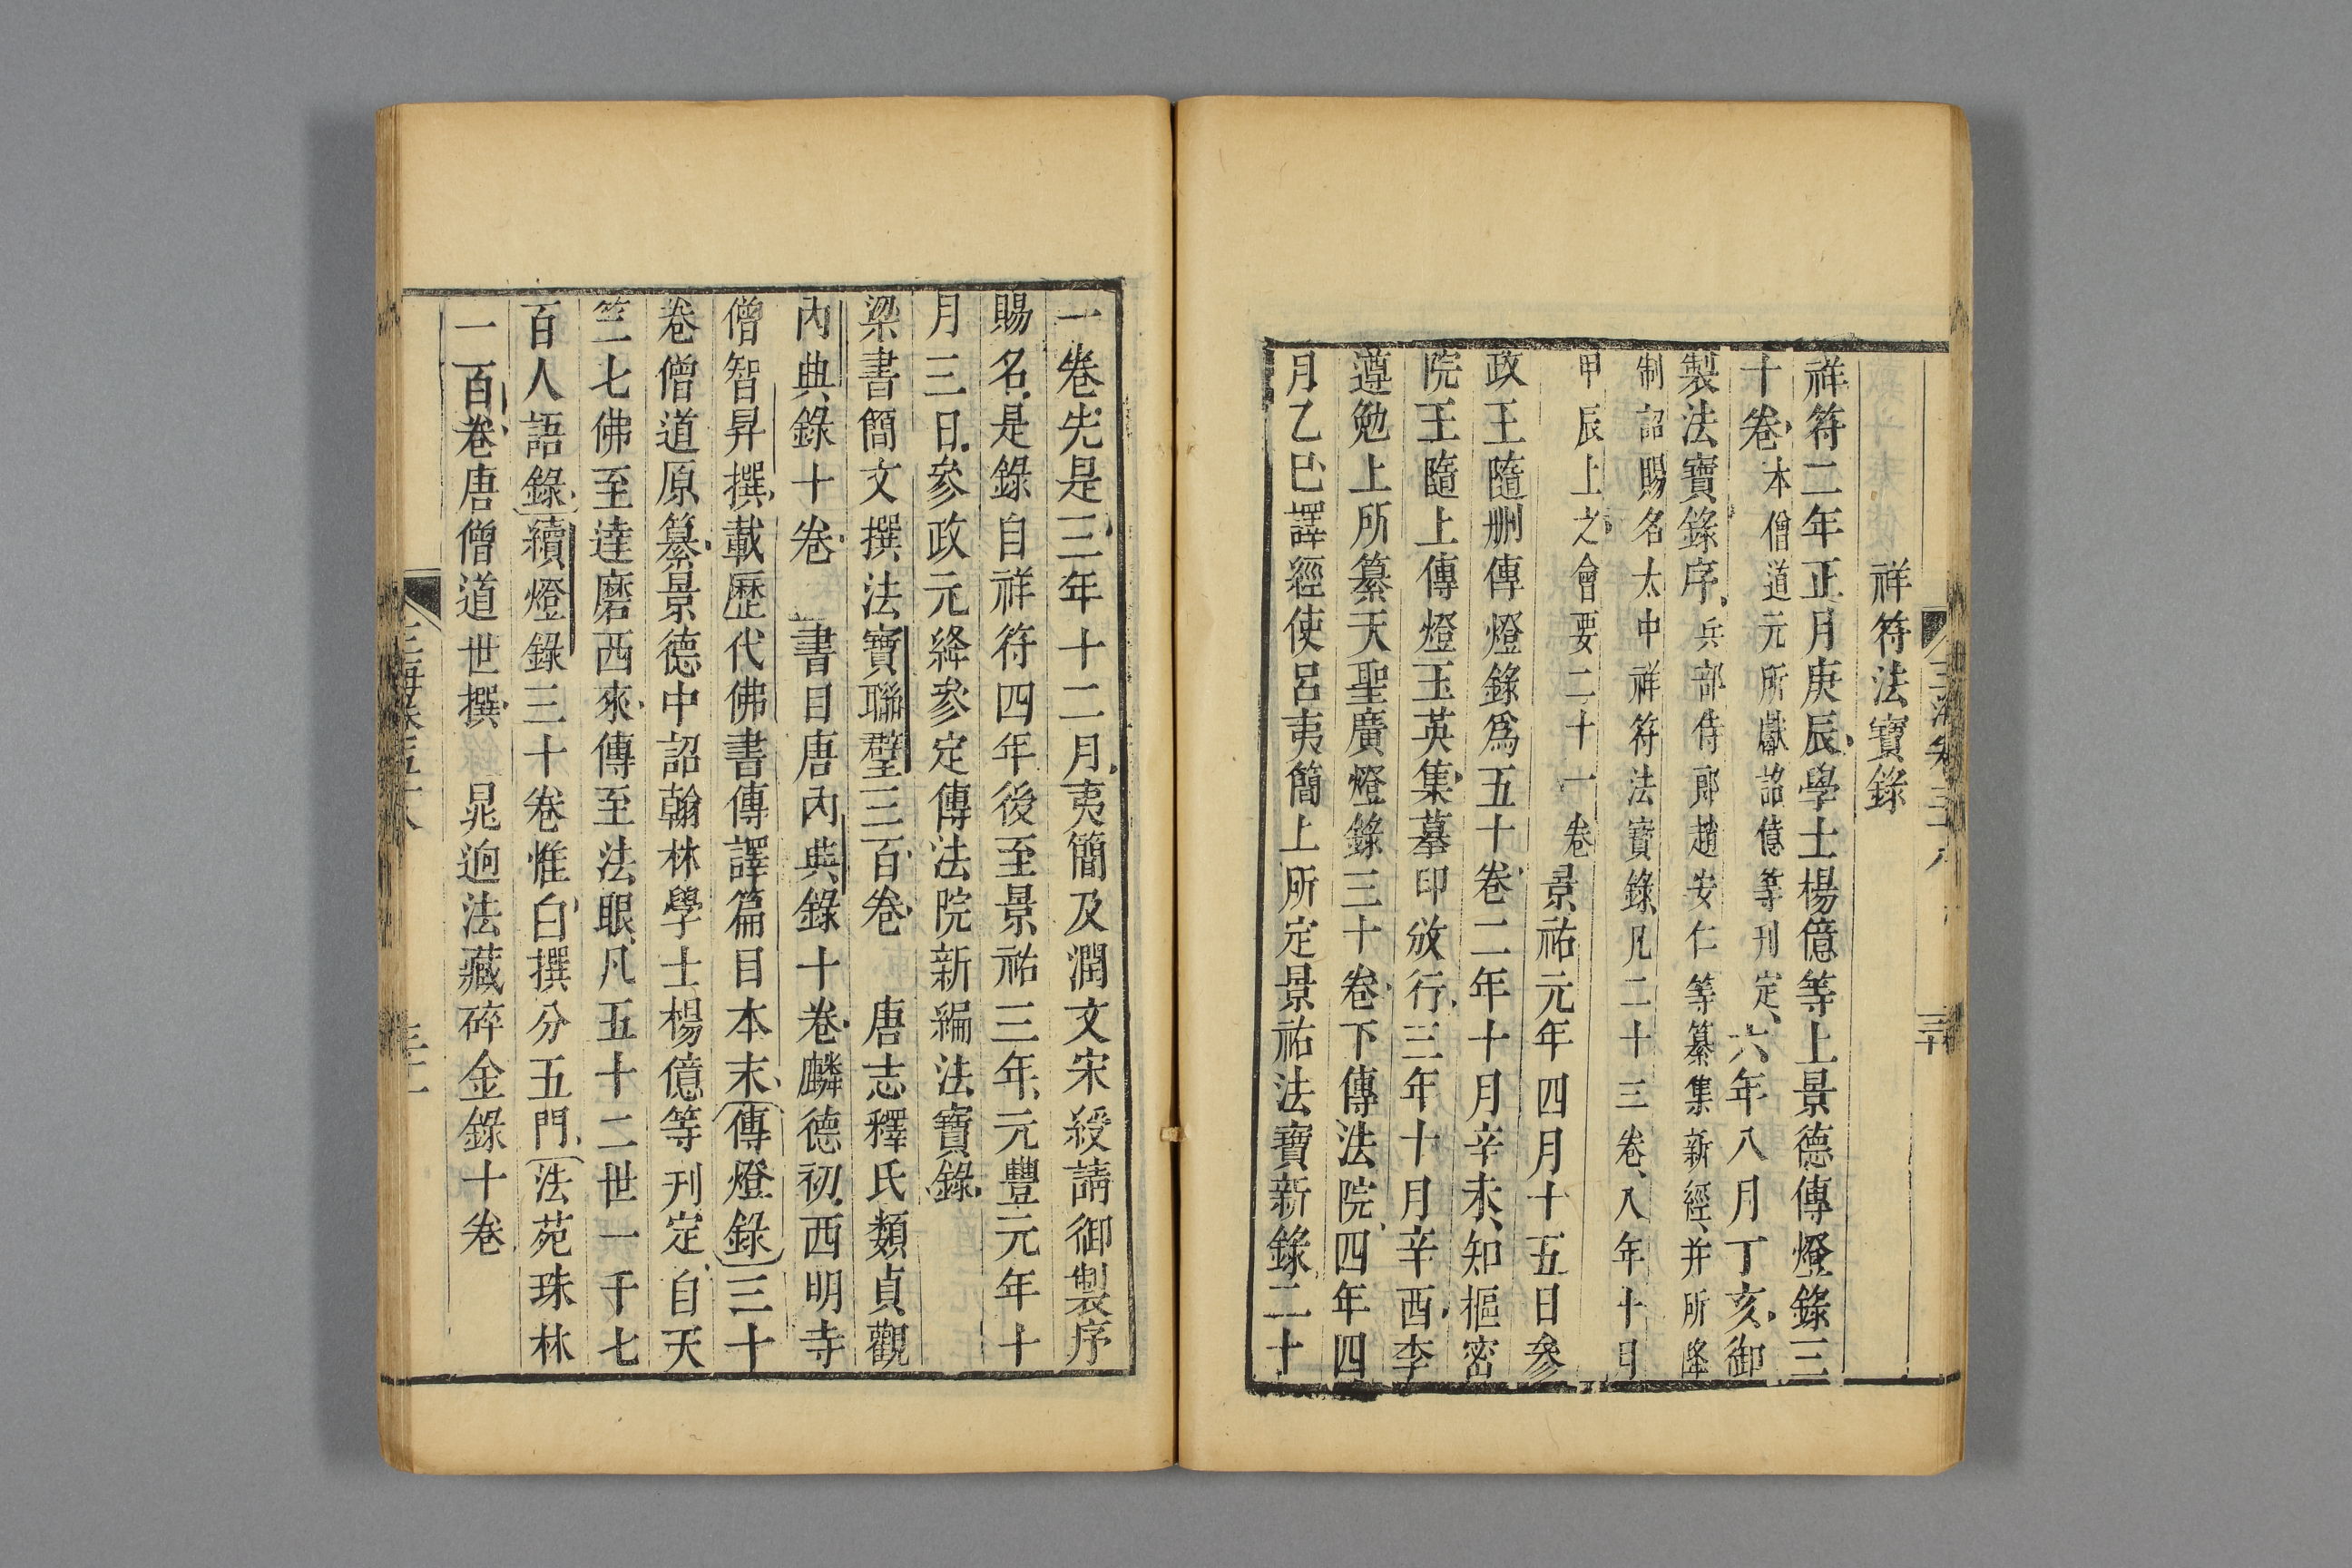 祥符法寶錄
祥符二年正月庚辰學士楊億等上景德傳燈錄三
十卷本僧道元所獻詔億等刊定六年八月丁亥御
製法寶錄序兵部侍郎趙安仁等纂集新經并所降
制詔賜名太中祥符法寶錄凡二十三卷八年十月
甲辰上之會要二十一卷景祐元年四月十五日參
政王隨刪傳燈錄爲五十卷二年十月辛未知樞密
院王隨上傳燈玉英集摹印放行三年十月辛酉李
遵勉上所纂天聖廣燈錄三十卷下傳法院四年四
月乙巳譯經使呂夷簡上所定景祐法寶新錄二十
一卷先是三年十二月夷簡及潤文宋綬請御製序
賜名是錄自祥符四年後至景祐三年元豐元年十
月三日參政元絳參定傳法院新編法寶錄
梁書簡文撰法寶聯璧三百卷 唐志釋氏類貞觀
內典錄十卷 書目唐內典錄十卷麟德初西明寺
僧智昇撰載歷代佛書傳譯篇目本末傳燈錄三十
卷僧道原纂景德中詔翰林學士楊億等刊定自天
竺七佛至達磨西來傳至法眼凡五十二世一千七
百人語錄續燈錄三十卷惟白撰分五門法苑珠林
一百卷唐僧道世撰 晁迥法藏碎金錄十卷